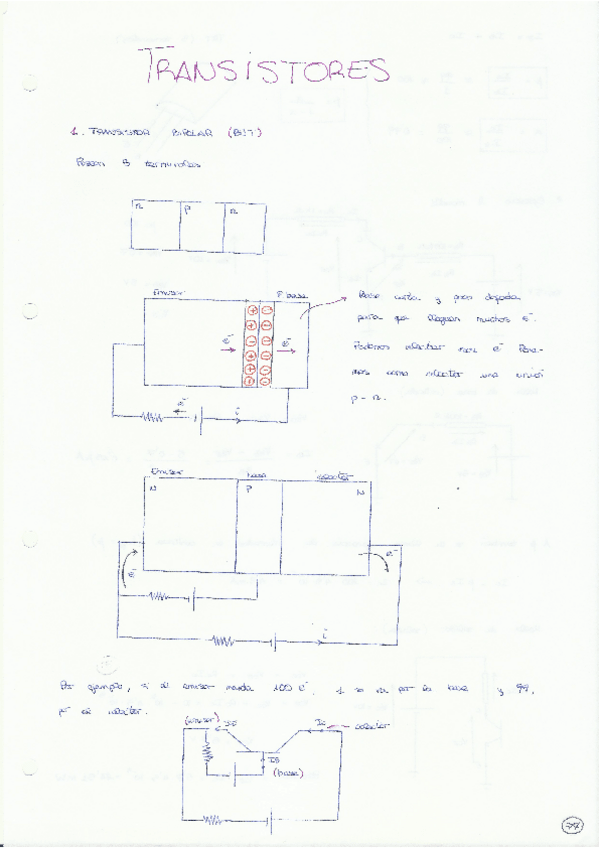 TRANSISTORES
1. TRANSISTOR BIPOLAR (BJT)
Poseen 3 terminales
n p n
Emisor P base
Base corta y poco dopada
para que lleguen muchos e⁻.
e⁻ e⁻
Podemos colectar más e⁻
e⁻
como colector una unión
i
p-n.
Emisor base colector
N P N
e⁻ e⁻
i
Por ejemplo, si el emisor manda 100 e⁻, 1 se va por la base y 99,
por el colector.
(emisor) IE IC colector
IB
(base)
77